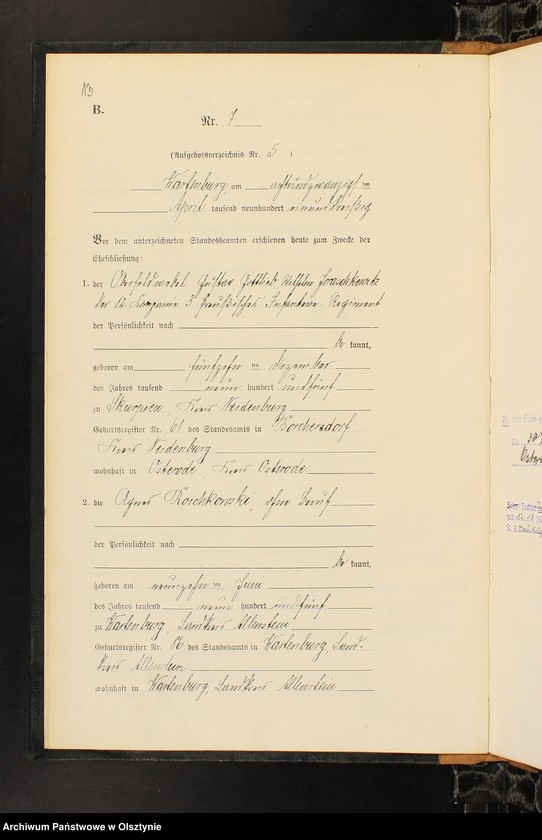 13
B.
Nr. 7
(Aufgebotsverzeichnis Nr. 5)
Wartenburg, am achtundzwanzigsten
April tausend neunhundert neununddreißig
Vor dem unterzeichneten Standesbeamten erschienen heute zum Zwecke der
Eheschließung:
1. der Oberfeldwebel Gustav Gottlieb Wilhelm
der 12. Kompanie 3 Preußisches Infanterie Regiment
der Persönlichkeit nach
be kannt,
geboren am fünfzehn ten Dezember
des Jahres tausend neun hundert undfünf
zu Skurpien, Kreis Neidenburg
Geburtsregister Nr. 61 des Standesamts in Borchersdorf
Kreis Neidenburg
wohnhaft in Osterode, Kreis Osterode
2. die Agnes Koschkowski, ohne Beruf
der Persönlichkeit nach
be kannt,
geboren am neunzehn ten Juni
des Jahres tausend neun hundert undfünf
zu Wartenburg, Landkreis Allenstein
Geburtsregister Nr. des Standesamts in Wartenburg, Land-
kreis Allenstein
wohnhaft in Wartenburg, Landkreis Allenstein
Archiwum Państwowe w Olsztynie